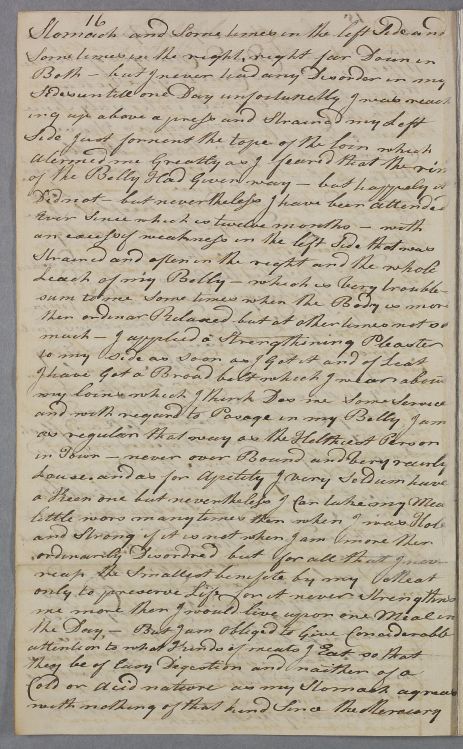 16
Stomach and Sometimes in the left Side and
Sometimes in the right, right far Down in
Both – but I never had any Disorder in my
Sides untill one Day unfortunatly I was reach
ing up above a press and Strained my Left
Side Just fornent the tope of the Loin which
alermed me Greatly as I feared that the rim
of the Belly Had Given way – but happely it
Did not – but nevertheless I have been attended
Ever Since which is twelve months – with
an excess of weakness in the left Side that was
Strained and often in the right and the whole
Leach of my Belly – which is very trouble-
sum to me Some times when the Body is more
then ordinar Relaxed but at other times not so
much – I applied a Strengthining Pleaster
to my Side as Soon as I Got it and of Leat
I have Got a Broad belt which I wear about
my Loins which I think Dos me Some Service
and with regard to Pasage in my Belly I am
as regular that way as the Helthiest Person
in Town – never over Bound and very rairly
Louse. and as for Apetity I very Seldum have
a Keen one but nevertheless I Can take my Mea
Little wors many times then when I was Hole
and Strong if it is not when I am more then
ordinarily Disordred but for all that I never
reap the Smallest benefite by my Meat
only to preserve Life for it never Strengthens
me more then I would live upon one Meal in
the Day – But I am Obliged to Give Considerable
attention to what Kinds of meats I Eat so that
they be of Easy Digestion and naither of a
Cold or Acid nature as my Stomach agrees
with nothing of that kind Since the Mercury